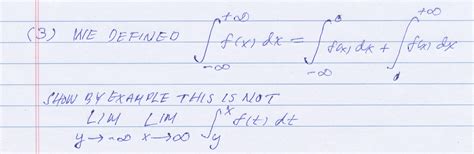 (3) WE DEFINED ∫_{-∞}^{+∞} f(x) dx = ∫_{-∞}^{0} f(x) dx + ∫_{0}^{+∞} f(x) dx
SHOW BY EXAMPLE THIS IS NOT
LIM_{y→-∞} LIM_{x→∞} ∫_{y}^{x} f(t) dt